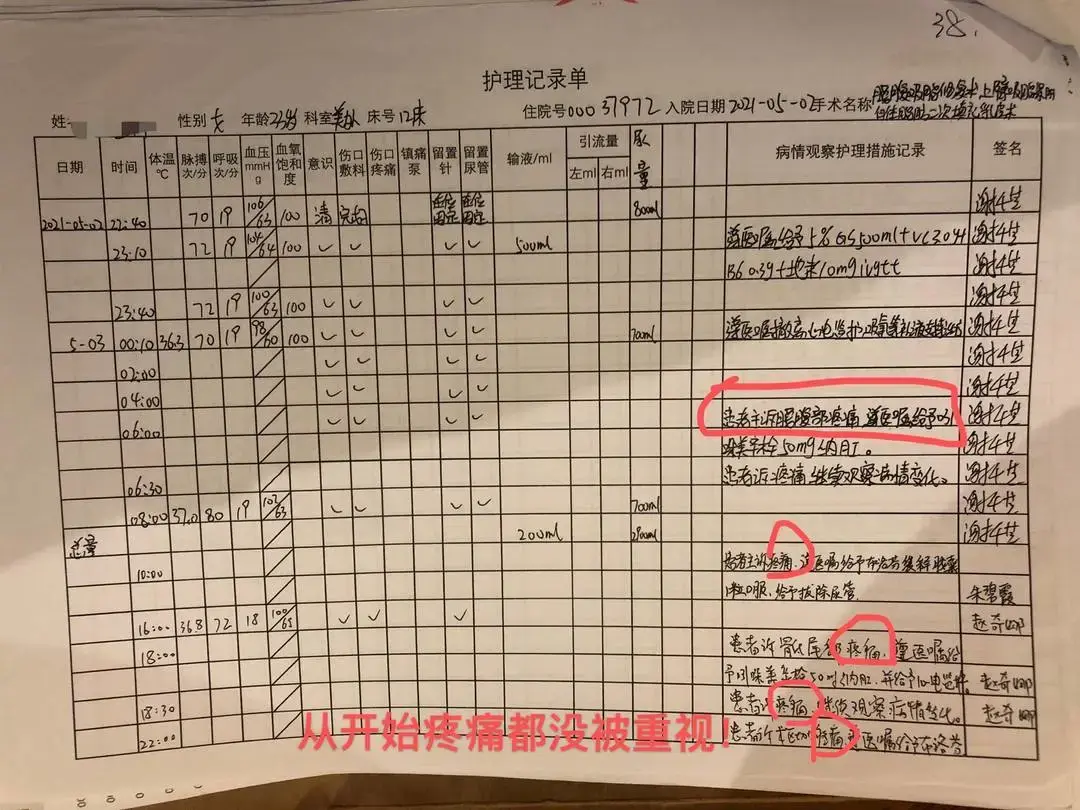 38.
护理记录单
姓名 性别 女 年龄 23岁 科室 美外 床号 12床 住院号 00037972 入院日期 2021-05-02 手术名称
日期 时间 体温℃ 脉搏次/分 呼吸次/分 血压mmHg 血氧饱和度 意识 伤口敷料 伤口疼痛 镇痛泵 留置针 留置尿管 输液/ml 引流量 左ml 右ml 尿量 病情观察护理措施记录 签名
2021-05-02 22:40 70 19 106/63 100 清 完好 在位固定 在位固定 800ml
23:10 72 19 104/64 100 ✓ ✓ ✓ ✓ 500ml 遵医嘱给予5%GS500ml+VC3.0+
B6 0.3g+地米10mg ivgtt
23:40 72 19 100/63 100 ✓ ✓ ✓ ✓
5-03 00:10 36.3 70 19 98/60 100 ✓ ✓ ✓ ✓ 700ml 遵医嘱撤离心电监护
02:00 ✓ ✓ ✓ ✓
04:00 ✓ ✓ ✓ ✓
06:00 ✓ ✓ ✓ ✓ 患者主诉腰腹部疼痛,遵医嘱给予吲
哚美辛栓50mg纳肛。
06:30 患者诉疼痛,继续观察病情变化。
08:00 37.0 80 19 102/63 ✓ ✓ ✓ ✓ 700ml
总量 200ml 2900ml
10:00 患者主诉疼痛,遵医嘱给予布洛芬缓释胶囊
1粒口服,给予拔除尿管. 朱碧霞
16:00 36.8 72 18 100/65 ✓ ✓ ✓
18:00 患者诉骶尾部疼痛,遵医嘱给
予吲哚美辛栓50mg纳肛,并给予
18:30 患者诉疼痛,继续观察病情变化。
22:00 患者诉 疼痛 遵医嘱给予布洛芬
从开始疼痛都没被重视!